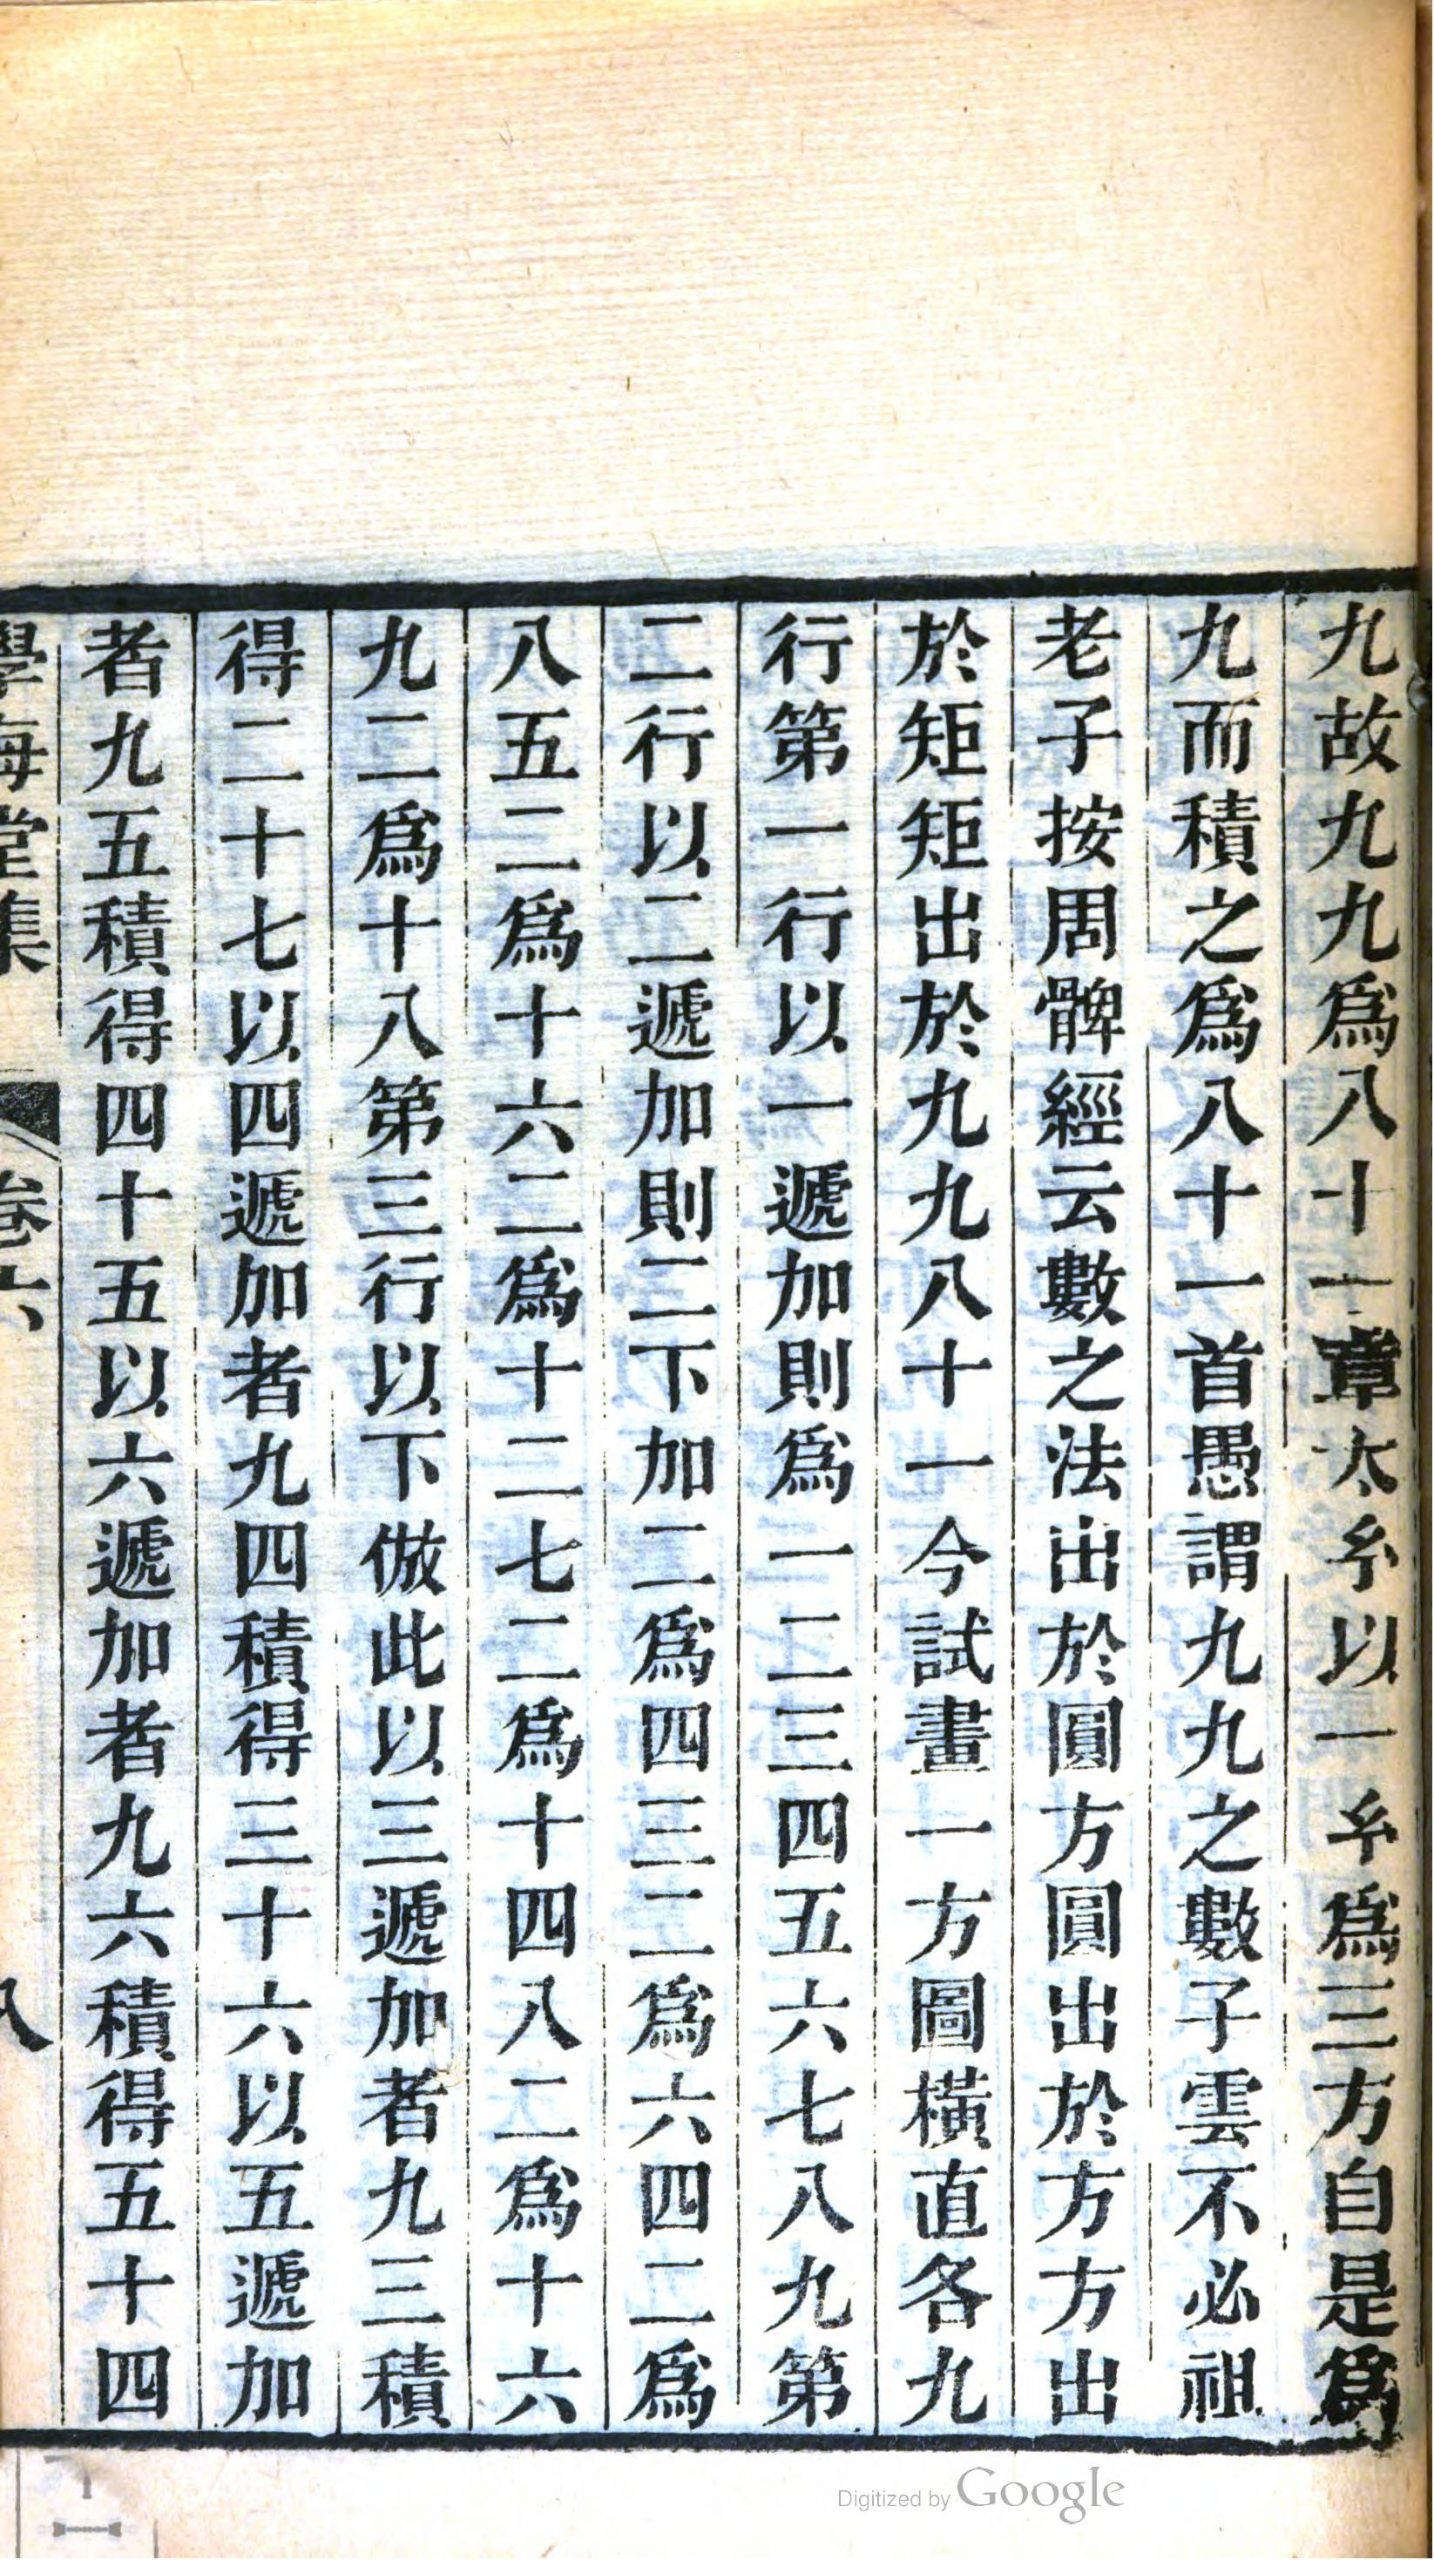 九故九九爲八十一章太玄以一玄爲三方自是爲
九而積之爲八十一首愚謂九九之數子雲不必祖
老子按周髀經云數之法出於圓方圓出於方方出
於矩矩出於九九八十一今試畫一方圖橫直各九
行第一行以一遞加則爲一二三四五六七八九第
二行以二遞加則二下加二爲四三二爲六四二爲
八五二爲十六二爲十二七二爲十四八二爲十六
九二爲十八第三行以下倣此以三遞加者九三積
得二十七以四遞加者九四積得三十六以五遞加
者九五積得四十五以六遞加者九六積得五十四
學海堂集 卷六 八
Digitized by Google